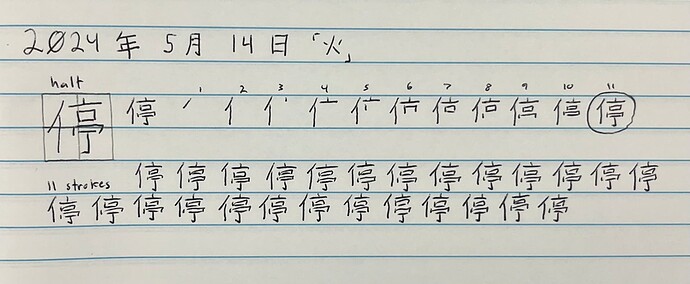 2024年 5月 14日「火」
halt 1 2 3 4 5 6 7 8 9 10 11
停 停 停
11 strokes 停 停 停 停 停 停 停 停 停 停 停 停 停
停 停 停 停 停 停 停 停 停 停 停 停 停